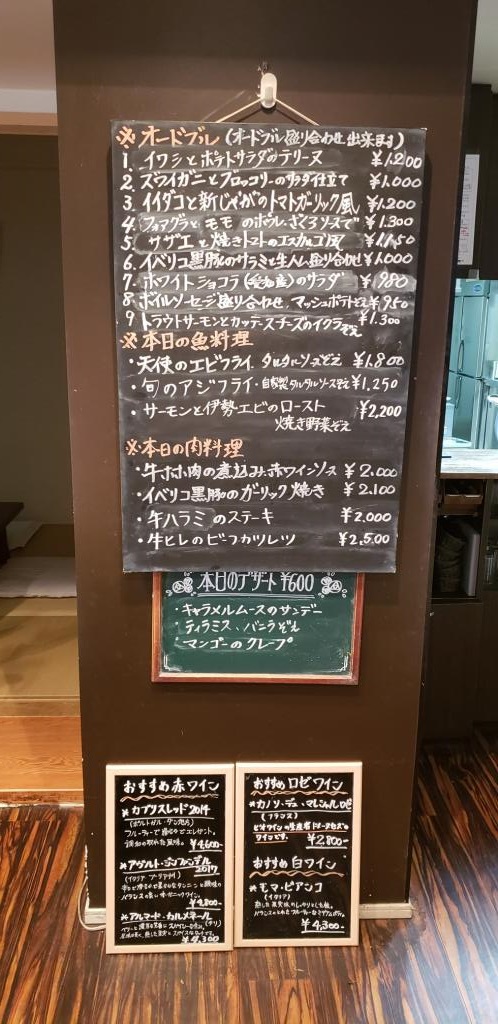 ※オードブル(オードブル盛り合わせ出来ます)
1. イワシとポテトサラダのテリーヌ ¥1.200
2. ズワイガニとブロッコリーのサラダ仕立て ¥1.000
3 イイダコと新じゃがのトマトガーリック風 ¥1.200
4. フォアグラとモモのポワレ ざくろソースで ¥1.300
5 サザエと焼きトマトのエスカルゴ風 ¥1.150
6. イベリコ黒豚のサラミと生ハム盛り合わせ ¥1.000
7. ホワイトショコラのサラダ ¥980
8. ボイルソーセージ盛り合わせ マッシュポテトぞえ ¥950
9 トラウトサーモンとカッテージチーズのイクラぞえ ¥1.300
※本日の魚料理
・天使のエビフライ タルタルソースぞえ ¥1.800
・旬のアジフライ・自家製タルタルソースぞえ ¥1.250
・サーモンと伊勢エビのロースト ¥2,200
焼き野菜ぞえ
※本日の肉料理
・牛ホホ肉の煮込み赤ワインソース ¥2.000
・イベリコ黒豚のガーリック焼き ¥2.100
・牛ハラミのステーキ ¥2,000
・牛ヒレのビーフカツレツ ¥2,500
本日のデザート ¥600
・キャラメルムースのサンデー
・ティラミス、バニラぞえ
・マンゴーのクレープ
おすすめ赤ワイン
※カブリスレッド2014
¥4,600-
2017
¥4,800-
※アルマード・カルメネール
¥4,300
おすすめ ロゼワイン
(フランス)
ワインです。 ¥2,800-
おすすめ 白ワイン
※モマ・ビアンコ
(イタリア)
¥4,300-